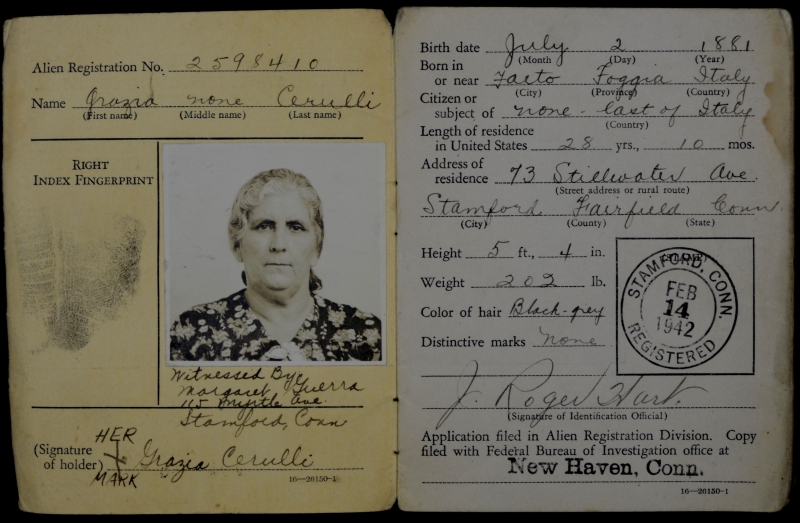 Alien Registration No. 2598410
Name Grazia none Cerulli
(First name) (Middle name) (Last name)
RIGHT
INDEX FINGERPRINT
Witnessed By:
Margaret Guerra
115 Myrtle Ave.
Stamford, Conn
HER
(Signature X Grazia Cerulli
of holder)
MARK
16—26150-1
Birth date July 2 1881
(Month) (Day) (Year)
Born in
or near Faeto Foggia Italy
(City) (Province) (Country)
Citizen or
subject of none - last of Italy
(Country)
Length of residence
in United States 28 yrs., 10 mos.
Address of
residence 73 Stillwater Ave.
(Street address or rural route)
Stamford Fairfield Conn.
(City) (County) (State)
Height 5 ft., 4 in.
Weight 202 lb.
Color of hair Black-grey
Distinctive marks None
STAMFORD, CONN.
FEB
14
1942
REGISTERED
J. Roger Hart.
(Signature of Identification Official)
Application filed in Alien Registration Division. Copy
filed with Federal Bureau of Investigation office at
New Haven, Conn.
16—26150-1